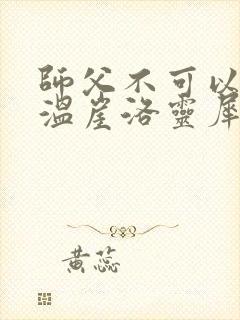 師父不可以
溫崖洛靈犀
黃蕊